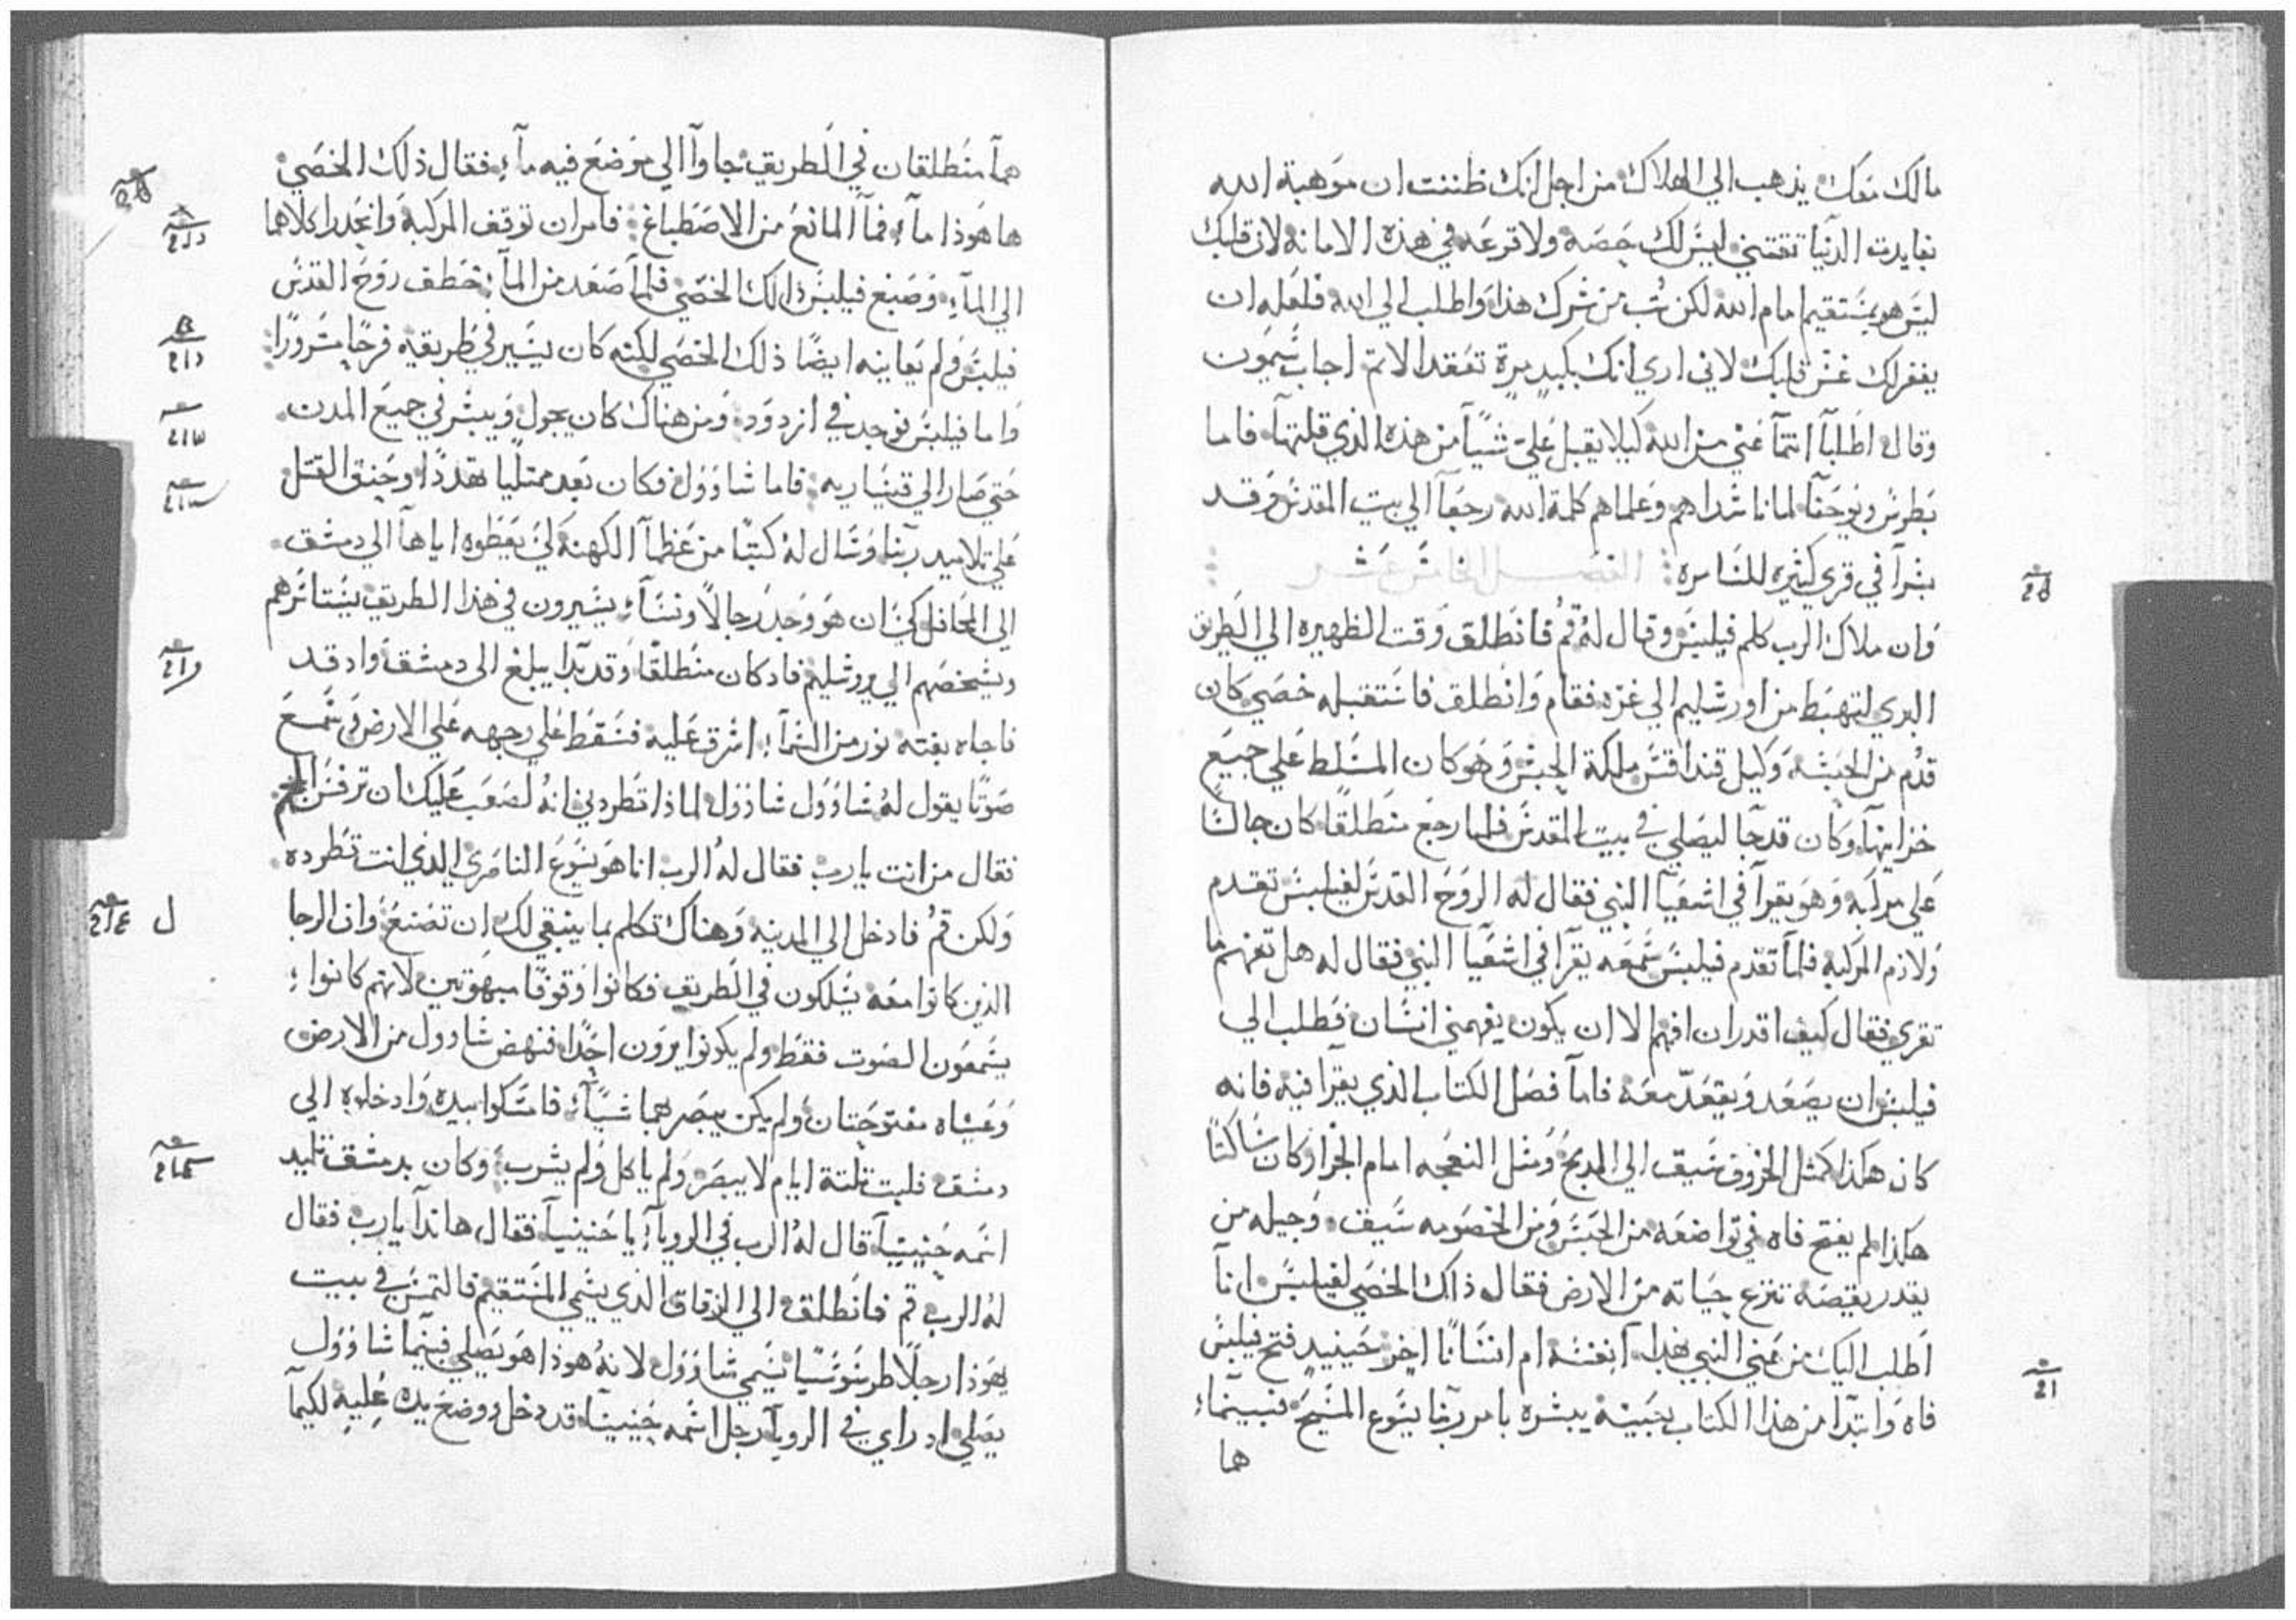 مالك معك يذهب الي الهلاك من اجل انك ظننت ان موهبة الله
الدنيا تقتني ليس لك حصه ولا قرعه في هذه الامانه لان قلبك
ليس هو بمستقيم امام الله لكن تب من شرك هذا واطلب الي الله فلعله ان
يغفر لك غش قلبك لاني اري انك بكبد مرة تعقد الاثم اجاب شمون
وقال اطلبا انتما عني من الله كيلا يقبل علي شيا من هذه الذي قلتها فاما
بطرس ويوحنا لما ناشداهم وعلماهم كلمة الله رجعا الي بيت المقدس وقد
بشرا في قري كثيره للسامره الفصل الخامس عشر
وان ملاك الرب كلم فيلبس وقال له قم فانطلق وقت الظهيره الي الطريق
البري لتهبط من اورشليم الي غزه فقام وانطلق فاستقبله خصي كان
قدم من الحبشه وكيل قنداقس ملكة الحبش وهو كان المسلط علي جميع
خزاينها وكان قد جا ليصلي في بيت المقدس فلما رجع منطلقا كان جالسا
علي مركبه وهو يقرا في اشعيا النبي فقال له الروح القدس لفيلبس تقدم
ولازم المركبه فلما تقدم فيلبس سمعه يقرا في اشعيا النبي فقال له هل تفهم ما
تقري فقال كيف اقدر ان افهم الا ان يكون يفهمني انسان فطلب الي
فيلبس ان يصعد ويقعد معه فاما فصل الكتاب الذي يقرا فيه فانه
كان هكذا كمثل الخروف سيق الي الذبح ومثل النعجه امام الجزار كان ساكتا
هكذا لم يفتح فاه في تواضعه من الحبس ومن الخصومه سيق وجيله من
يقدر يقصه تنزع حياته من الارض فقال ذاك الخصي لفيلبس انا
اطلب اليك من عني النبي بهذا انفسه ام انسانا اخر حينيد فتح فيلبس
فاه وابتدا من هذا الكتاب بحبسه يبشره بامر ربنا يسوع المسيح فبينما
هما
هما منطلقان في الطريق جاوا الي موضع فيه ما فقال ذلك الخصي
ها هوذا ما فما المانع من الاصطباغ فامر ان توقف المركبه وانحدرا كلاهما
الي الما وصبغ فيلبس ذالك الخصي فلما صعد من الما خطف روح القدس
فيلبس ولم يعاينه ايضا ذلك الخصي لكنه كان يسير في طريقه فرحا مسرورا
واما فيلبس فوجد في ازدود ومن هناك كان يجول ويبشر في جميع المدن
حتي صار الي قيساريه فاما شاوول فكان بعد ممتليا تهددا وحنق القتل
علي تلاميد ربنا وسال له كتبا من عظما الكهنه لكي يعطوه اياها الي دمشق
الي المحافل كي ان هو وجد رجالا ونسا يسيرون في هذا الطريق يستاسرهم
ويشخصهم الي يروشليم فاد كان منطلقا وقد بدا يبلغ الي دمشق واد قد
فاجاه بغته نور من السما اشرق عليه فسقط علي وجهه علي الارض وسمع
صوتا يقول له شاوول شاوول لماذا تطردني انه لصعب عليك ان ترفس
فقال من انت يارب فقال له الرب انا هو يسوع الناصري الذي انت تطرده
ولكن قم فادخل الي المدينه وهناك تكلم بما ينبغي لك ان تصنع وان الرجا
ل
الذين كانوا معه يسلكون في الطريق فكانوا وقوفا مبهوتين لانهم كانوا
يسمعون الصوت فقط ولم يكونوا يرون احدا فنهض شاوول من الارض
وعيناه مفتوحتان ولم يكن يبصر بهما شيا فامسكوا بيده وادخلوه الي
دمشق فلبت تلتة ايام لا يبصر ولم ياكل ولم يشرب وكان بدمشق تلميد
اسمه حنينيا قال له الرب في الرويا يا حنينيا فقال هاندا يارب فقال
له الرب قم فانطلق الي الزقاق الذي يسمي المستقيم فالتمس في بيت
يهوذا رجلا طرسوسيا يسمي شاوول لانه هوذا هو يصلي فبينما شاوول
يصلي اد راي في الرويا رجل اسمه حنينيا قد دخل ووضع يده عليه لكيما